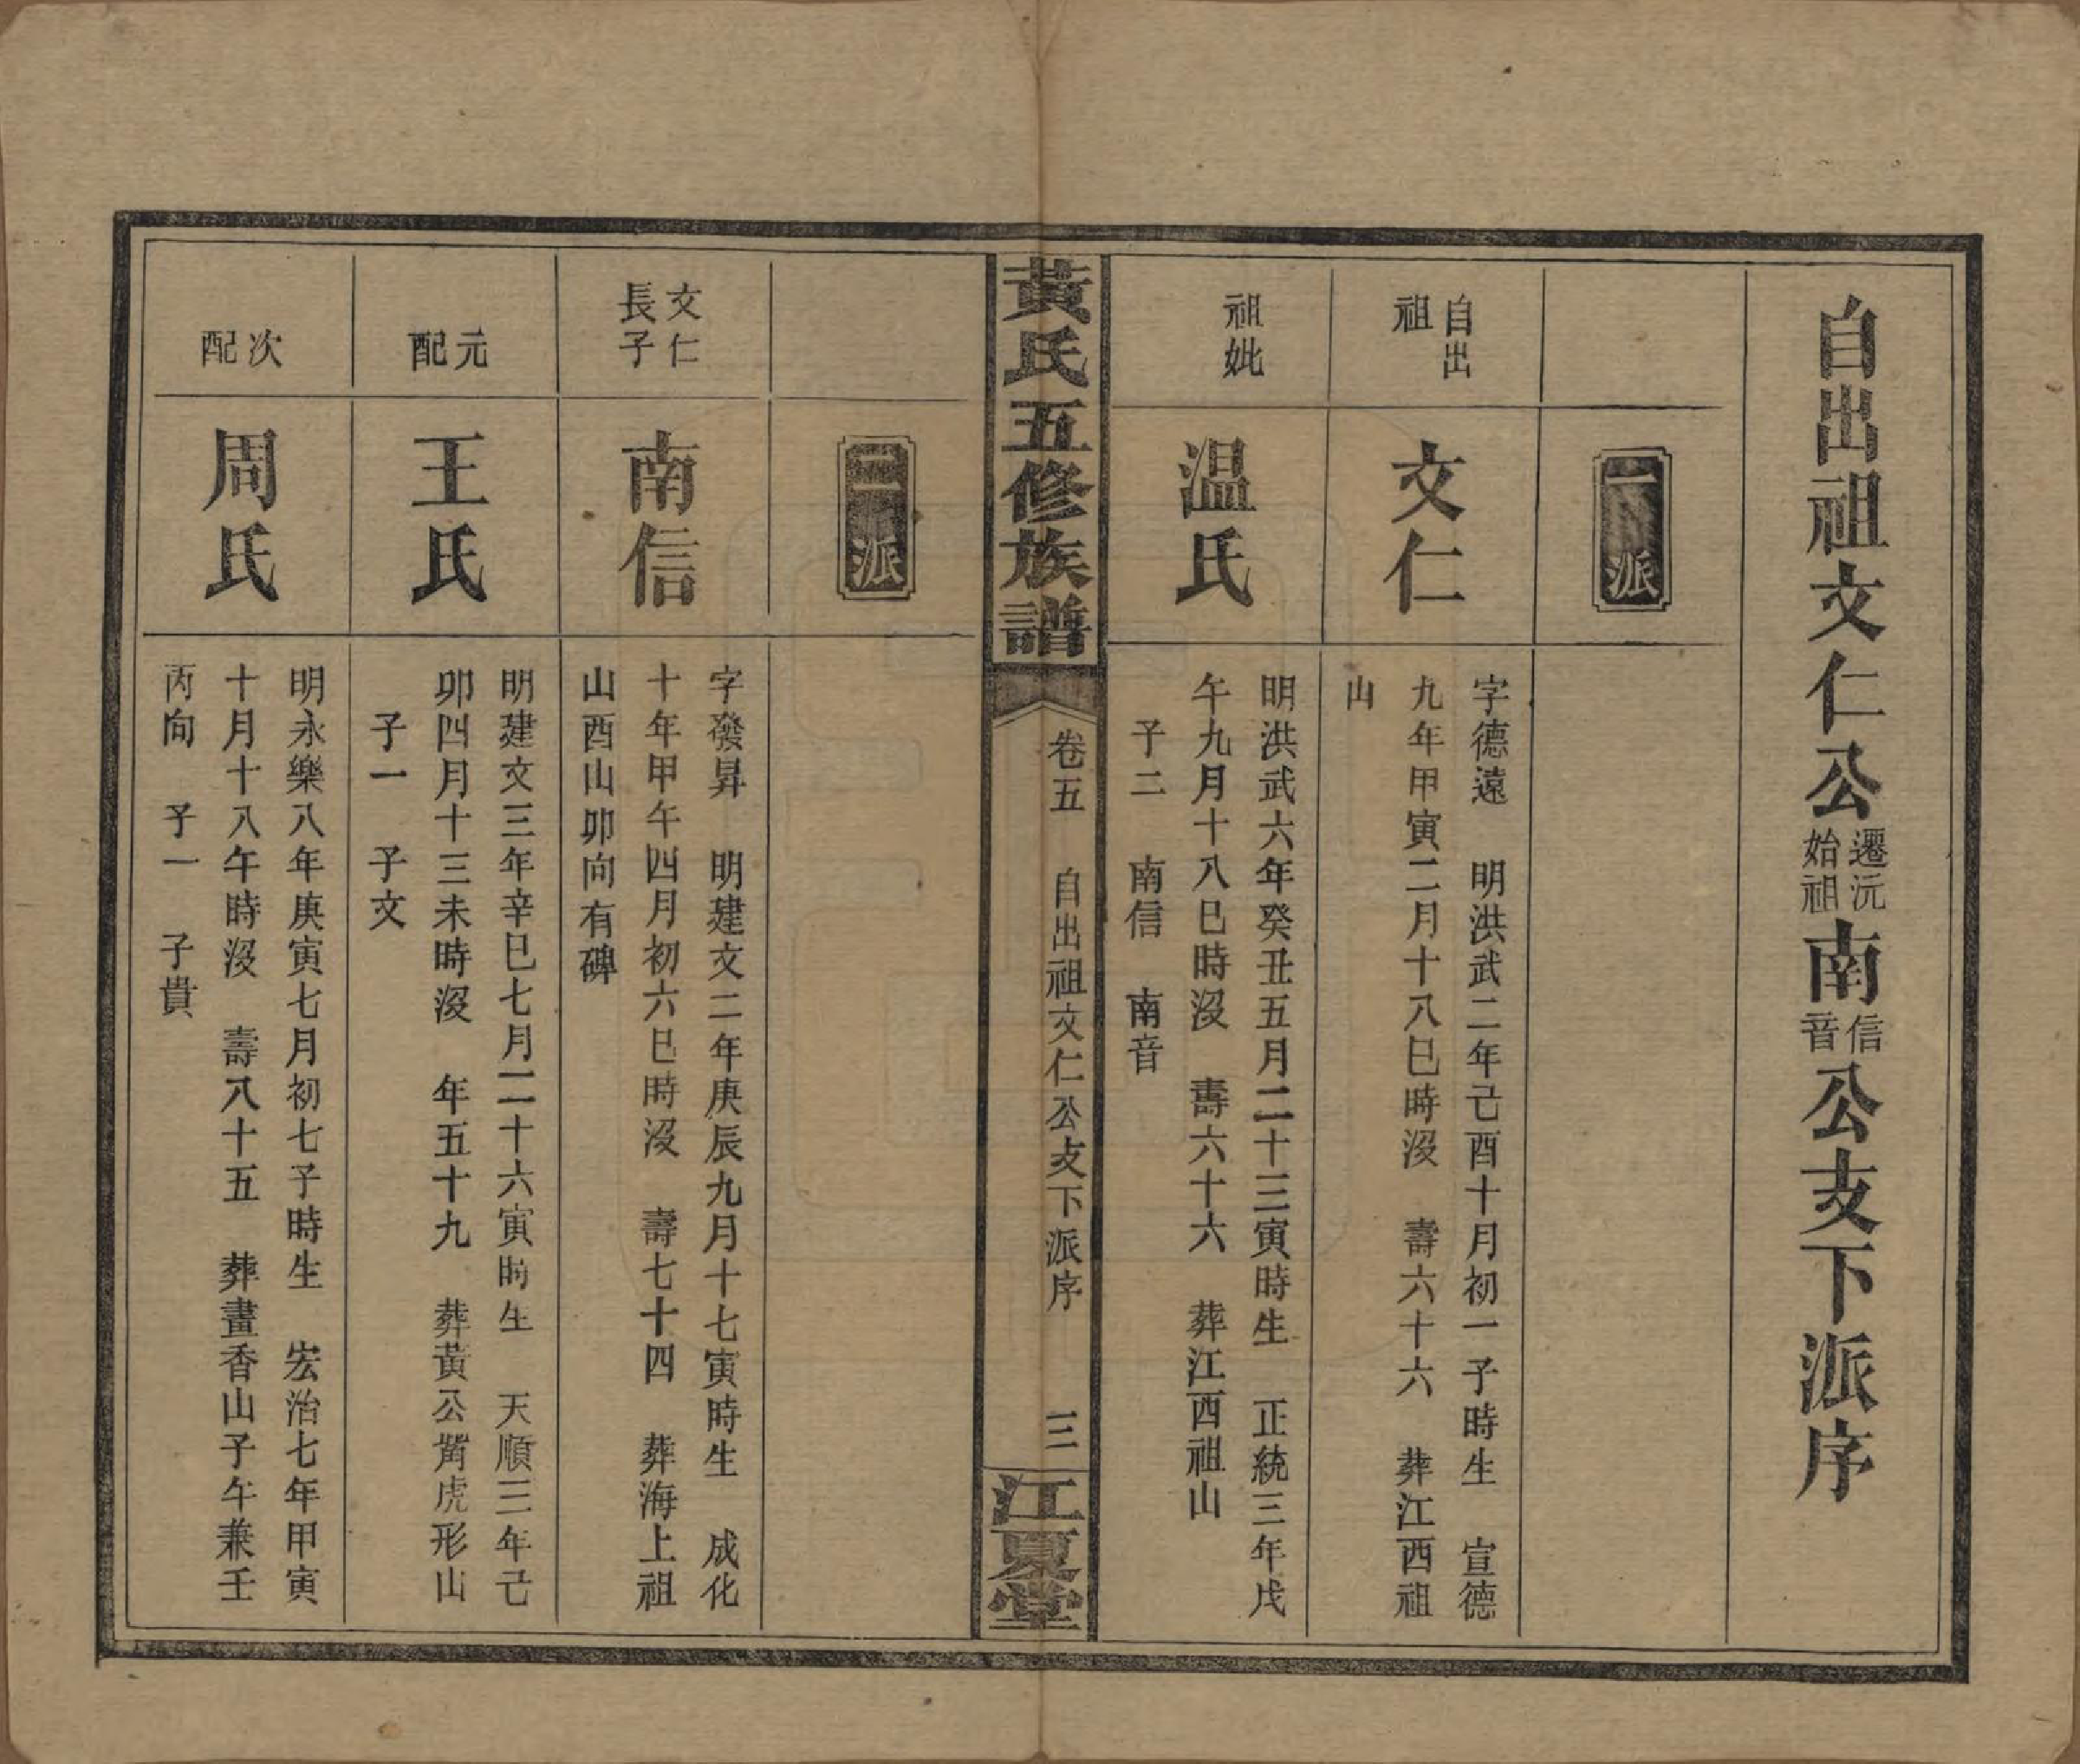 自出祖文仁公遷沅始祖南信音公支下派序
一派
自出祖
文仁
字德遠　明洪武二年己酉十月初一子時生　宣德
九年甲寅二月十八巳時沒　壽六十六　葬江西祖
山
祖妣
温氏
明洪武六年癸丑五月二十三寅時生　正統三年戊
午九月十八巳時沒　壽六十六　葬江西祖山
子二　南信　南音
黃氏五修族譜
卷五　自出祖文仁公支下派序　三
江夏堂
二派
文仁長子
南信
字發昇　明建文二年庚辰九月十七寅時生　成化
十年甲午四月初六巳時沒　壽七十四　葬海上祖
山酉山卯向有碑
元配
王氏
明建文三年辛巳七月二十六寅時生　天順三年己
卯四月十三未時沒　年五十九　葬黃公觜虎形山
子一　子文
次配
周氏
明永樂八年庚寅七月初七子時生　宏治七年甲寅
十月十八午時沒　壽八十五　葬畫香山子午兼壬
丙向　子一　子貴